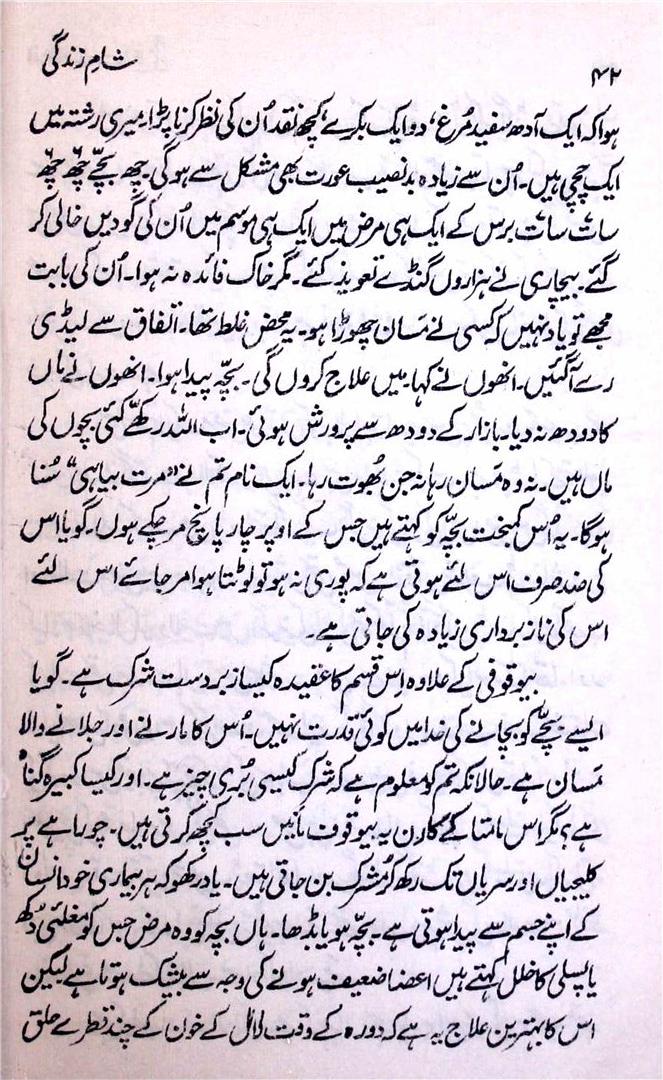 ۴۲
شامِ زندگی
ہوا کہ ایک آدھ سفید مُرغ، دو ایک بکرے، کچھ نقد اُن کی نظر کرنا پڑا۔ میری رشتہ میں
ایک چچی ہیں۔ اُن سے زیادہ بدنصیب عورت بھی مشکل سے ہوگی۔ چھ بچّے چھ چھ
سات سات برس کے ایک ہی مرض میں ایک ہی موسم میں اُن کی گودیں خالی کر
گئے۔ بیچاری نے ہزاروں گنڈے تعویذ کئے۔ مگر خاک فائدہ نہ ہوا۔ اُن کی بابت
مجھے تو یاد نہیں کہ کسی نے مَسان چھوڑا ہو۔ یہ محض غلط تھا۔ اتفاق سے لیڈی
رے آگئیں۔ انھوں نے کہا میں علاج کروں گی۔ بچّہ پیدا ہوا۔ انھوں نے ماں
کا دودھ نہ دیا۔ بازار کے دودھ سے پرورش ہوئی۔ اب اللہ رکھے کئی بچوں کی
ماں ہیں۔ نہ وہ مَسان رہا نہ جن بھُوت رہا۔ ایک نام تم نے "مرت بیاہی" سُنا
ہوگا۔ یہ اُس کمبخت بچّہ کو کہتے ہیں جس کے اوپر چار پانچ مر چکے ہوں۔ گویا اس
کی ضد صرف اس لئے ہوتی ہے کہ پوری نہ ہو تو لوٹتا ہوا مر جائے اس لئے
اس کی ناز برداری زیادہ کی جاتی ہے۔
بیوقوفی کے علاوہ اِس قسم کا عقیدہ کیسا زبردست شرک ہے۔ گویا
ایسے بچّے کو بچانے کی خدا میں کوئی قدرت نہیں۔ اُس کا مارنے اور جلانے والا
مَسان ہے۔ حالانکہ تم کو معلوم ہے کہ شرک کیسی بُری چیز ہے۔ اور کیسا کبیرہ گناہ
ہے؟ مگر اس مامتا کے کارن یہ بیوقوف مائیں سب کچھ کرتی ہیں۔ چوراہے پر
کلیجیاں اور سریاں تک رکھ کر مُشرک بن جاتی ہیں۔ یاد رکھو کہ ہر بیماری خود انسان
کے اپنے جسم سے پیدا ہوتی ہے۔ بچّہ ہو یا بڈھا۔ ہاں بچہ کو وہ مرض جس کو مغلئی دُکھ
یا پسلی کا خلل کہتے ہیں اعضا ضعیف ہونے کی وجہ سے بیشک ہوتا ہے لیکن
اس کا بہترین علاج یہ ہے کہ دورہ کے وقت لال کے خون کے چند قطرے حلق